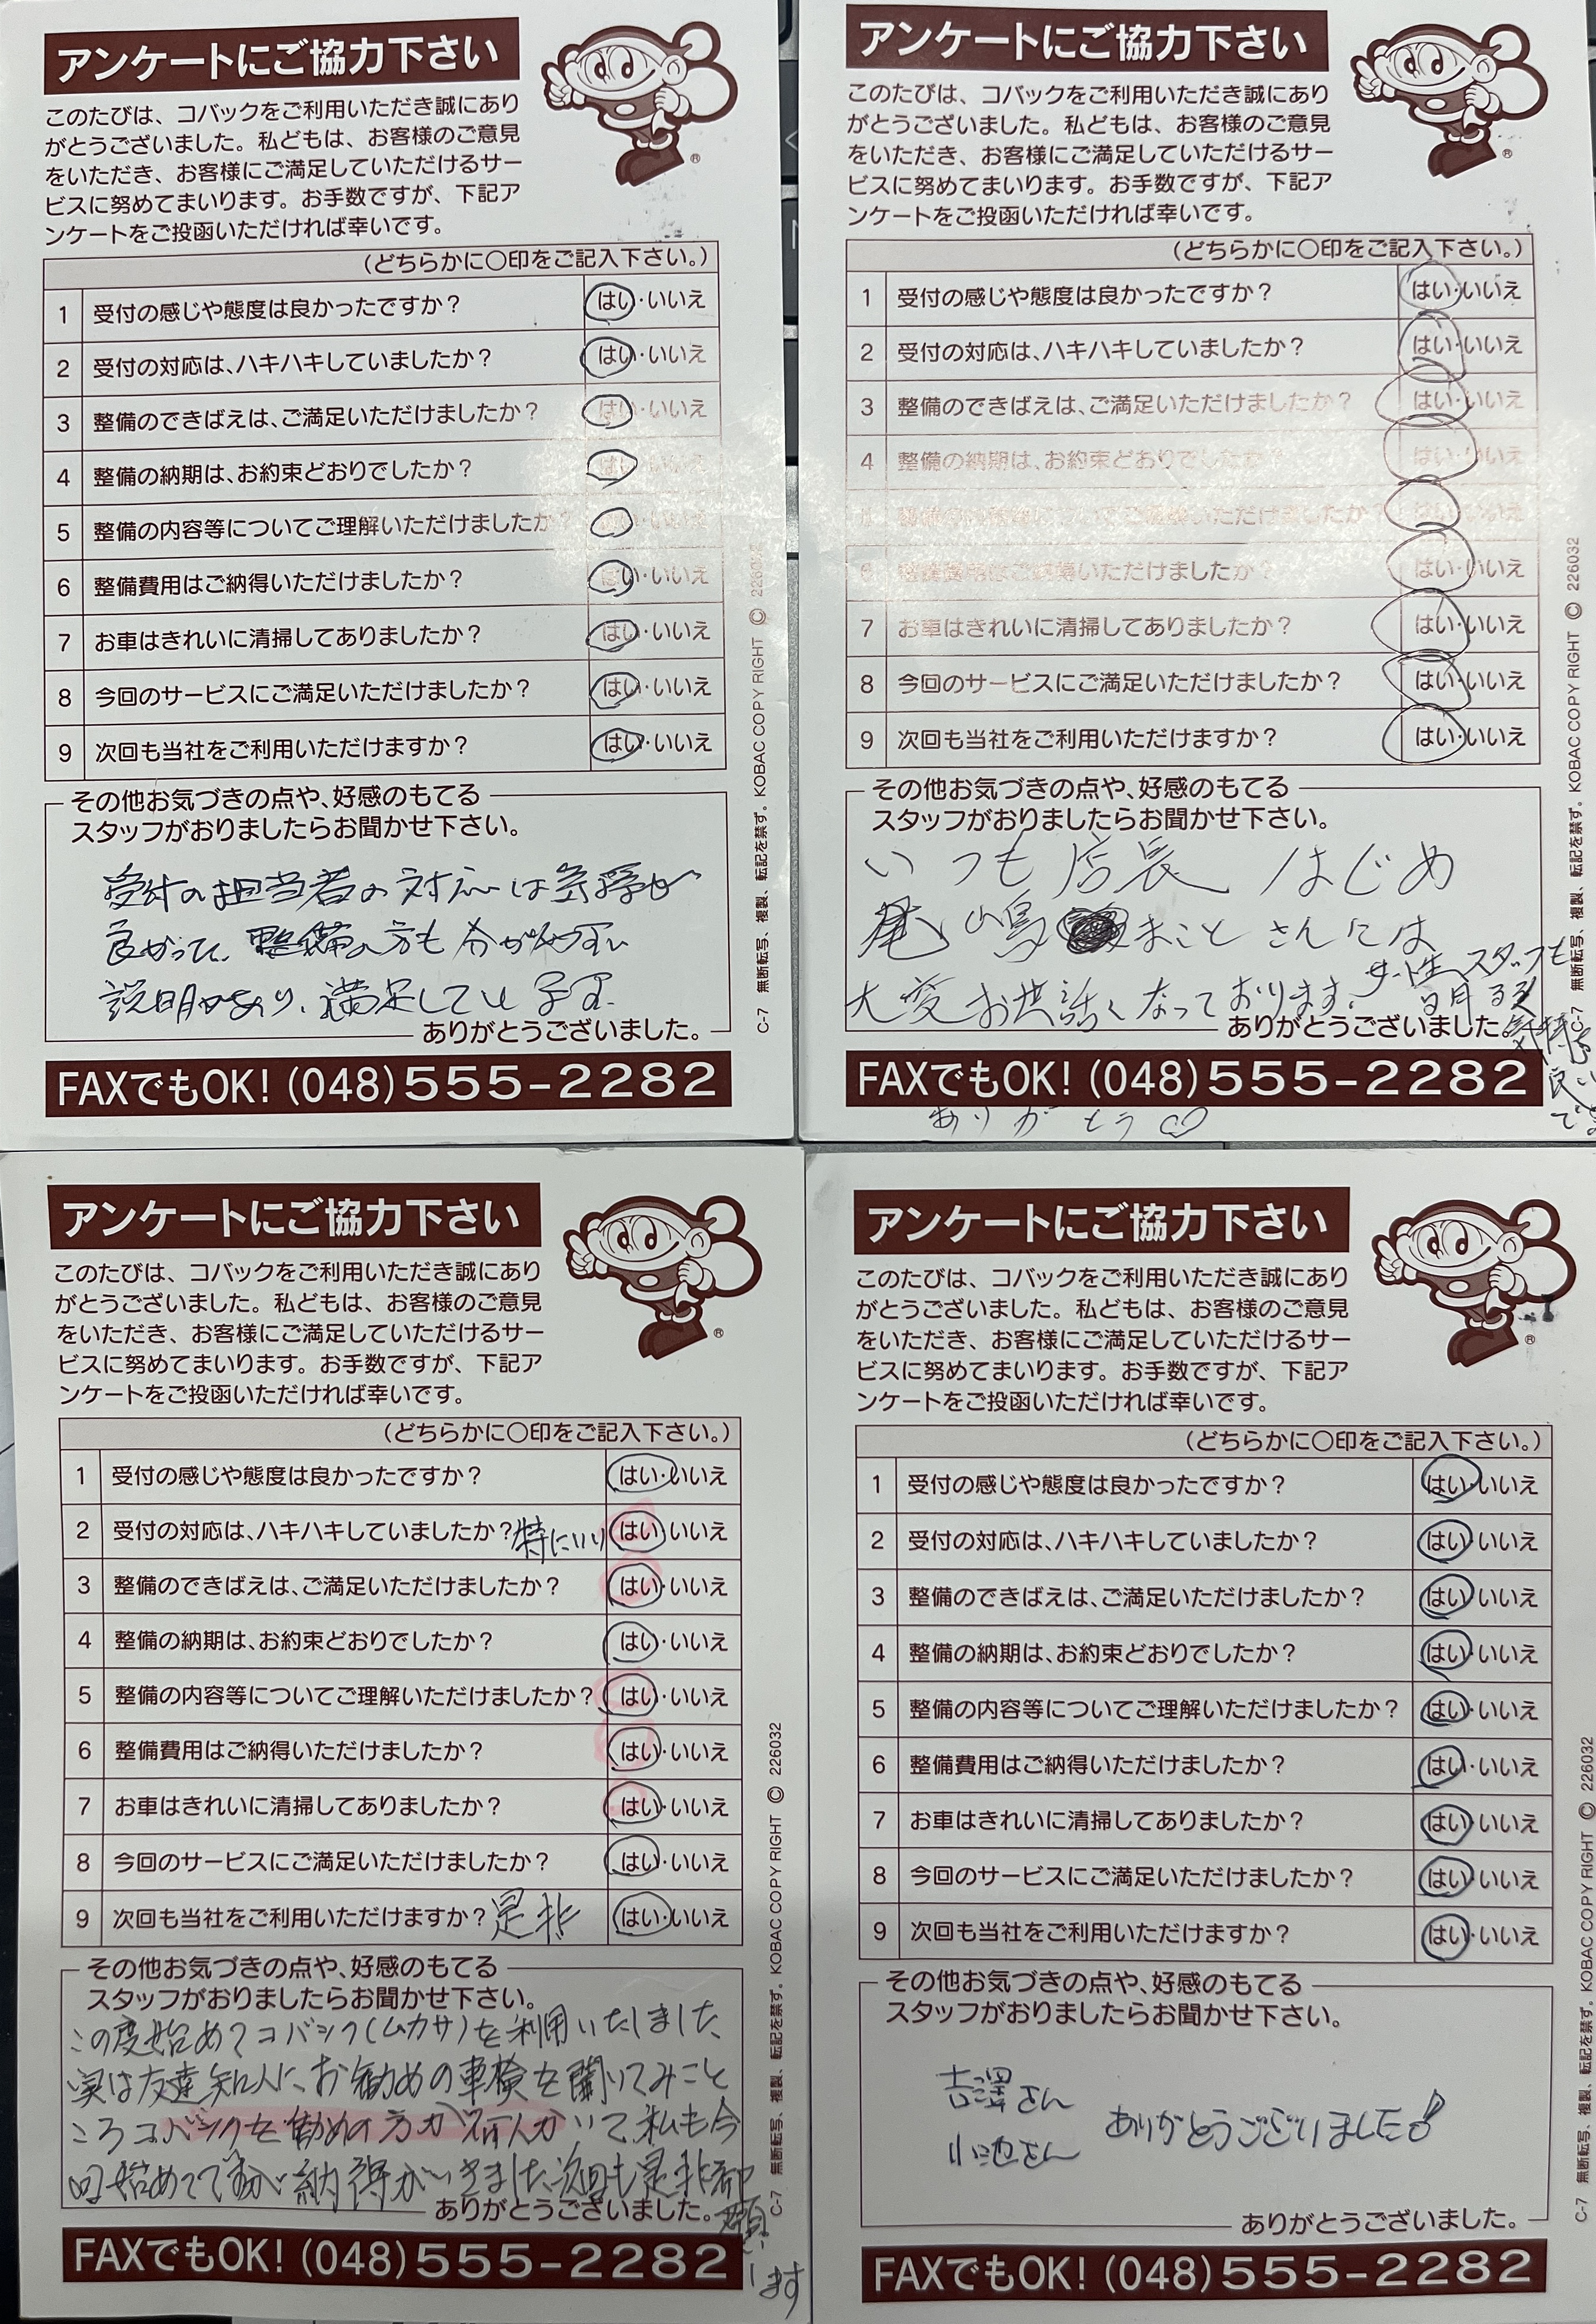 アンケートにご協力下さい
このたびは、コバックをご利用いただき誠にあり
がとうございました。私どもは、お客様のご意見
をいただき、お客様にご満足していただけるサー
ビスに努めてまいります。お手数ですが、下記ア
ンケートをご投函いただければ幸いです。
(どちらかに〇印をご記入下さい。)
1 受付の感じや態度は良かったですか? はい・いいえ
2 受付の対応は、ハキハキしていましたか? はい・いいえ
3 整備のできばえは、ご満足いただけましたか? はい・いいえ
4 整備の納期は、お約束どおりでしたか? はい・いいえ
5 整備の内容等についてご理解いただけましたか? はい・いいえ
6 整備費用はご納得いただけましたか? はい・いいえ
7 お車はきれいに清掃してありましたか? はい・いいえ
8 今回のサービスにご満足いただけましたか? はい・いいえ
9 次回も当社をご利用いただけますか? はい・いいえ
その他お気づきの点や、好感のもてる
スタッフがおりましたらお聞かせ下さい。
受付の担当者の対応は気持も
良かって、整備の方も分かり易い
説明があり、満足して
ありがとうございました。
FAXでもOK! (048)555-2282
C-7 無断転写、複製、転記を禁ず。KOBAC COPY RIGHT © 226032
アンケートにご協力下さい
このたびは、コバックをご利用いただき誠にあり
がとうございました。私どもは、お客様のご意見
をいただき、お客様にご満足していただけるサー
ビスに努めてまいります。お手数ですが、下記ア
ンケートをご投函いただければ幸いです。
(どちらかに〇印をご記入下さい。)
1 受付の感じや態度は良かったですか? はい・いいえ
2 受付の対応は、ハキハキしていましたか? はい・いいえ
3 整備のできばえは、ご満足いただけましたか? はい・いいえ
4 整備の納期は、お約束どおりでしたか? はい・いいえ
5 整備の内容等についてご理解いただけましたか? はい・いいえ
6 整備費用はご納得いただけましたか? はい・いいえ
7 お車はきれいに清掃してありましたか? はい・いいえ
8 今回のサービスにご満足いただけましたか? はい・いいえ
9 次回も当社をご利用いただけますか? はい・いいえ
その他お気づきの点や、好感のもてる
スタッフがおりましたらお聞かせ下さい。
いつも店長はじめ
尾嶋 まことさんには
大変お世話になっております。女性スタッフも
明るく
気持ち
良い
です
ありがとうございました。
FAXでもOK! (048)555-2282
ありがとう♡
C-7 無断転写、複製、転記を禁ず。KOBAC COPY RIGHT © 226032
アンケートにご協力下さい
このたびは、コバックをご利用いただき誠にあり
がとうございました。私どもは、お客様のご意見
をいただき、お客様にご満足していただけるサー
ビスに努めてまいります。お手数ですが、下記ア
ンケートをご投函いただければ幸いです。
(どちらかに〇印をご記入下さい。)
1 受付の感じや態度は良かったですか? はい・いいえ
2 受付の対応は、ハキハキしていましたか? 特にいい はい・いいえ
3 整備のできばえは、ご満足いただけましたか? はい・いいえ
4 整備の納期は、お約束どおりでしたか? はい・いいえ
5 整備の内容等についてご理解いただけましたか? はい・いいえ
6 整備費用はご納得いただけましたか? はい・いいえ
7 お車はきれいに清掃してありましたか? はい・いいえ
8 今回のサービスにご満足いただけましたか? はい・いいえ
9 次回も当社をご利用いただけますか? 是非 はい・いいえ
その他お気づきの点や、好感のもてる
スタッフがおりましたらお聞かせ下さい。
この度始めてコバック(ムカサ)を利用いたしました
実は友達知人に、お勧めの車検を聞いてみこと
ころコバックを勧めの方が何人かいて私も今
回始めてですが納得がいきました次回も是非御
願い
します
ありがとうございました。
FAXでもOK! (048)555-2282
C-7 無断転写、複製、転記を禁ず。KOBAC COPY RIGHT © 226032
アンケートにご協力下さい
このたびは、コバックをご利用いただき誠にあり
がとうございました。私どもは、お客様のご意見
をいただき、お客様にご満足していただけるサー
ビスに努めてまいります。お手数ですが、下記ア
ンケートをご投函いただければ幸いです。
(どちらかに〇印をご記入下さい。)
1 受付の感じや態度は良かったですか? はい・いいえ
2 受付の対応は、ハキハキしていましたか? はい・いいえ
3 整備のできばえは、ご満足いただけましたか? はい・いいえ
4 整備の納期は、お約束どおりでしたか? はい・いいえ
5 整備の内容等についてご理解いただけましたか? はい・いいえ
6 整備費用はご納得いただけましたか? はい・いいえ
7 お車はきれいに清掃してありましたか? はい・いいえ
8 今回のサービスにご満足いただけましたか? はい・いいえ
9 次回も当社をご利用いただけますか? はい・いいえ
その他お気づきの点や、好感のもてる
スタッフがおりましたらお聞かせ下さい。
吉澤さん
小池さん
ありがとうございました♪
ありがとうございました。
FAXでもOK! (048)555-2282
C-7 無断転写、複製、転記を禁ず。KOBAC COPY RIGHT © 226032